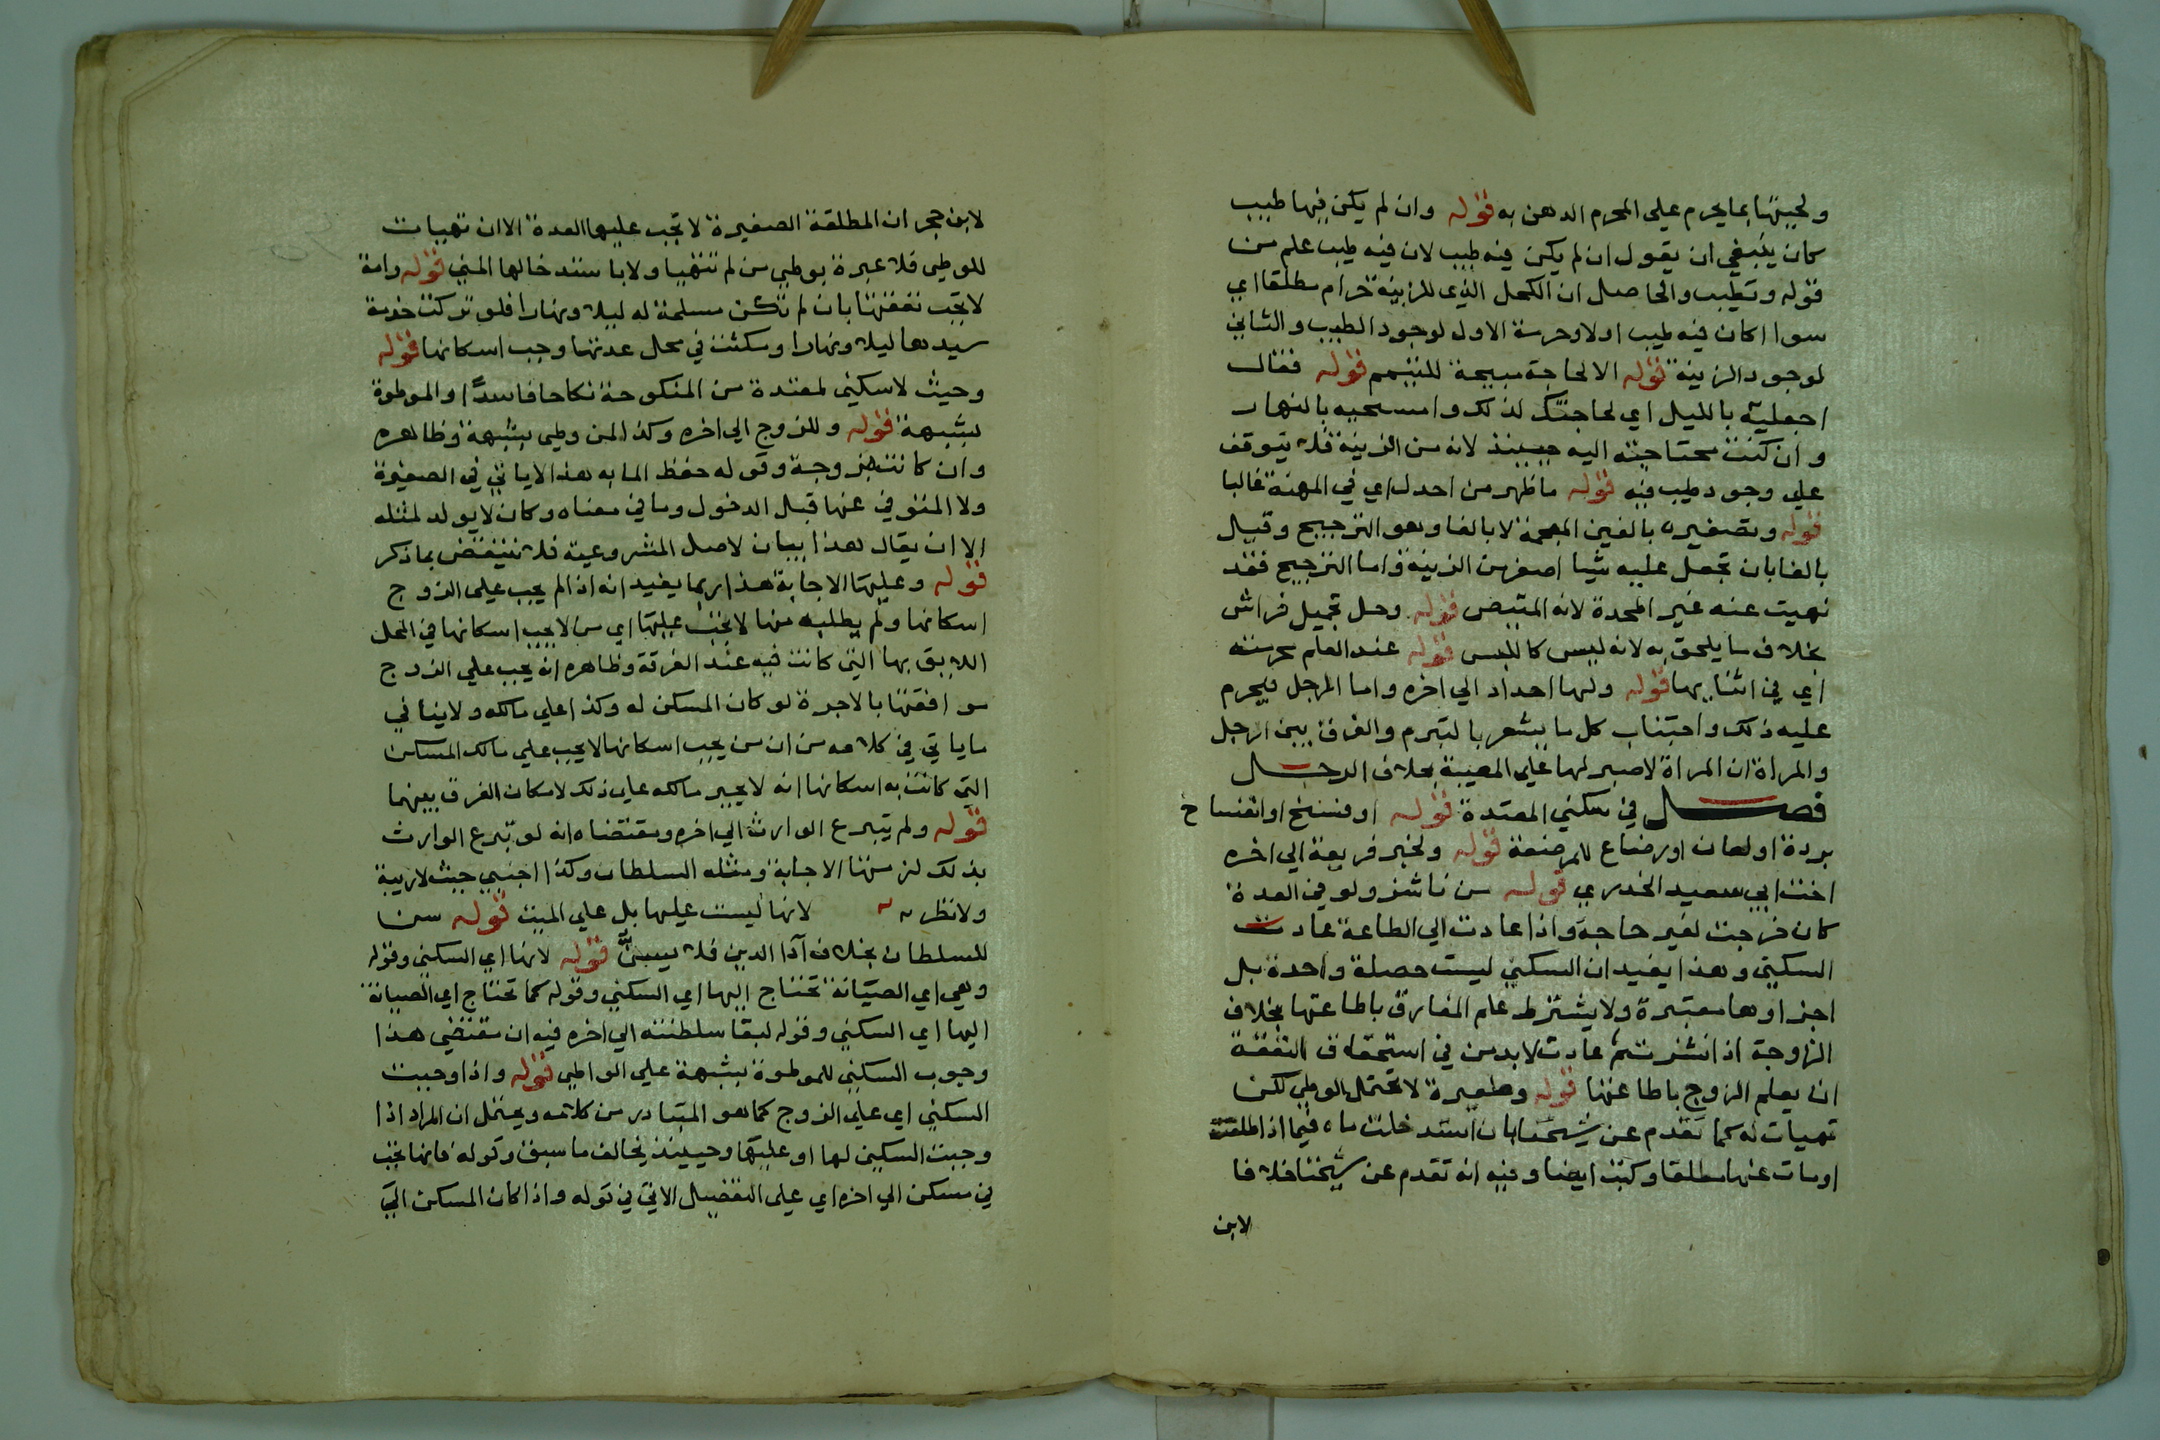 ولحيتها بما يحرم على المحرم الدهن به قوله وان لم يكن فيها طيب
كان ينبغي ان يقول ان لم يكن فيه طيب لان فيه طيب علم من
قوله وتطيب والحاصل ان الكحل الذي للزينة حرام مطلقا اي
سوا اكان فيه طيب اولا وحرمة الاول لوجود الطيب والثاني
لوجود الزينة قوله الا لحاجة مبيحة للتيمم قوله فقال
اجعليه بالليل اي لحاجتك لذلك وامسحيه بالنهار
وان كنت محتاجته اليه حينئذ لانه من الزينة فلا يتوقف
على وجود طيب فيه قوله ما ظهر من احدل اي في المهنة غالبا
قوله وتصغيره بالغين المعجمة لا بالفا وهو الترجيح وقيل
بالفا بان تجعل عليه شيا اصفر من الزينة واما الترجيح فقد
نهيت عنه غير المحدة لانه المتبص قوله وحل تجميل فراش
بخلاف ما يلحق به لانه ليس كاللبس قوله عند العلم بحرمته
اي في اثنايها قوله ولها احداد الي اخره واما الرجل فيحرم
عليه ذلك واجتناب كل ما يشعر بالتبرم والفرق بين الرجل
والمراة ان المراة لا صبر لها على المصيبة بخلاف الرجل
فصل في سكني المعتدة قوله او فسخ او انفساخ
بردة او لعان او رضاع للمرضعة قوله ولخبر فريعة الي اخره
اخت ابي سعيد الخدري قوله من ناشز ولو في العدة
كان خرجت لغير حاجة واذا عادت الي الطاعة عادت
السكني وهذا يفيد ان السكني ليست خصلة واحدة بل
اجزاوها معتبرة ولا يشترط علم المفارق باطاعتها بخلاف
الزوجة اذا نشزت ثم عادت لابد من في استحقاق النفقة
ان يعلم الزوج باطاعتها قوله وصغيرة لا تحتمل الوطي لكن
تهيات له كما تقدم عن شيخنا بان استدخلت ماه فيما اذا طلقت
او مات عنها مطلقا وكتب ايضا وفيه انه تقدم عن شيخنا خلافا
لابن
لابن حجر ان المطلقة الصغيرة لا تجب عليها العدة الا ان تهيات
للوطي فلا عبرة بوطي من لم تتهيا ولا باستدخالها المني قوله وامة
لا تجب نفقتها بان لم تكن مسلمة له ليلا ونهارا فلو تركت خدمة
سيدها ليلا ونهارا ومكثت في محل عدتها وجب اسكانها قوله
وحيث لا سكني لمعتدة من المنكوحة نكاحا فاسدا والموطوة
بشبهة قوله وللزوج الي اخره وكذا لمن وطي بشبهة وظاهره
وان كانت زوجة وقوله حفظ المابه هذا لا ياتي في الصغيرة
ولا المتوفي عنها قبل الدخول وما في معناه وكان لا يولد لمثله
الا ان يقال هذا بيان لاصل المشروعية فلا ينتقض بما ذكر
قوله وعليها الاجابة هذا ربما يفيد انه اذا لم يجب على الزوج
اسكانها ولم يطلبه منها لا يجب عليها اي من لا يجب اسكانها في المحل
اللايق بها التي كانت فيه عند الفرقة وظاهره انه يجب علي الزوج
موافقتها بالاجرة لو كان المسكن له وكذا علي مالكه ولا ينافي
ما ياتي في كلامه من ان من يجب اسكانها لا يجب علي مالك المسكن
التي كانت به اسكانها انه لا يجبر مالكه على ذلك لامكان الفرق بينهما
قوله ولم يتبرع الوارث الي اخره ومقتضاه انه لو تبرع الوارث
بذلك لزمتها الاجابة ومثله السلطان وكذا اجنبي حيث لا ريبة
ولا نظر لانها ليست عليها بل على الميت قوله سن
للسلطان بخلاف آدا الدين فلا يسن قوله لانها اي السكني وقوله
وهي اي الصيانة تحتاج اليها اي السكني وقوله كما تحتاج اي الصيانة
اليها اي السكني وقوله لبقا سلطنته الي اخره فيه ان مقتضي هذا
وجوب السكني للموطوة بشبهة علي الواطي قوله واذا وجبت
السكني اي علي الزوج كما هو المتبادر من كلامه ويحتمل ان المراد اذا
وجبت السكني لها او عليها وحينئذ يخالف ما سبق وقوله فانها تجب
في مسكن الي اخره اي على التفضيل الاتي في قوله واذا كان المسكن الي